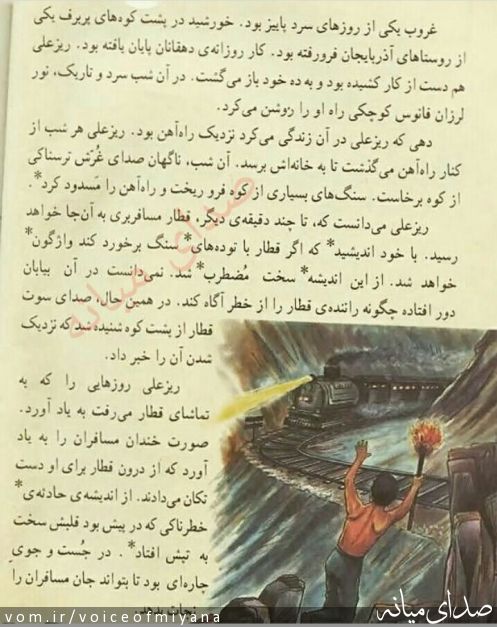 غروب یکی از روزهای سرد پاییز بود. خورشید در پشت کوه‌های پربرف یکی
از روستاهای آذربایجان فرورفته بود. کار روزانه‌ی دهقانان پایان یافته بود. ریزعلی
هم دست از کار کشیده بود و به ده خود باز می‌گشت. در آن شب سرد و تاریک، نور
لرزان فانوس کوچکی راه او را روشن می‌کرد.
دهی که ریزعلی در آن زندگی می‌کرد نزدیک راه‌آهن بود. ریزعلی هر شب از
کنار راه‌آهن می‌گذشت تا به خانه‌اش برسد. آن شب، ناگهان صدای غُرّش ترسناکی
از کوه برخاست. سنگ‌های بسیاری از کوه فرو ریخت و راه‌آهن را مَسدود کرد*.
ریزعلی می‌دانست که، تا چند دقیقه‌ی دیگر، قطار مسافربری به آن‌جا خواهد
رسید. با خود اندیشید* که اگر قطار با توده‌های* سنگ برخورد کند واژگون*
خواهد شد. از این اندیشه* سخت مُضطرب* شد. نمی‌دانست در آن بیابان
دور افتاده چگونه راننده‌ی قطار را از خطر آگاه کند. در همین حال، صدای سوت
قطار از پشت کوه شنیده شد که نزدیک
شدن آن را خبر داد.
ریزعلی روزهایی را که به
تماشای قطار می‌رفت به یاد آورد.
صورت خندان مسافران را به یاد
آورد که از درون قطار برای او دست
تکان می‌دادند. از اندیشه‌ی حادثه‌ی*
خطرناکی که در پیش بود قلبش سخت
به تپش افتاد*. در جُست و جویِ
چاره‌ای بود تا بتواند جان مسافران را
نجات بدهد.
صدای میانه
vom.ir/voiceofmiyana
صدای میانه